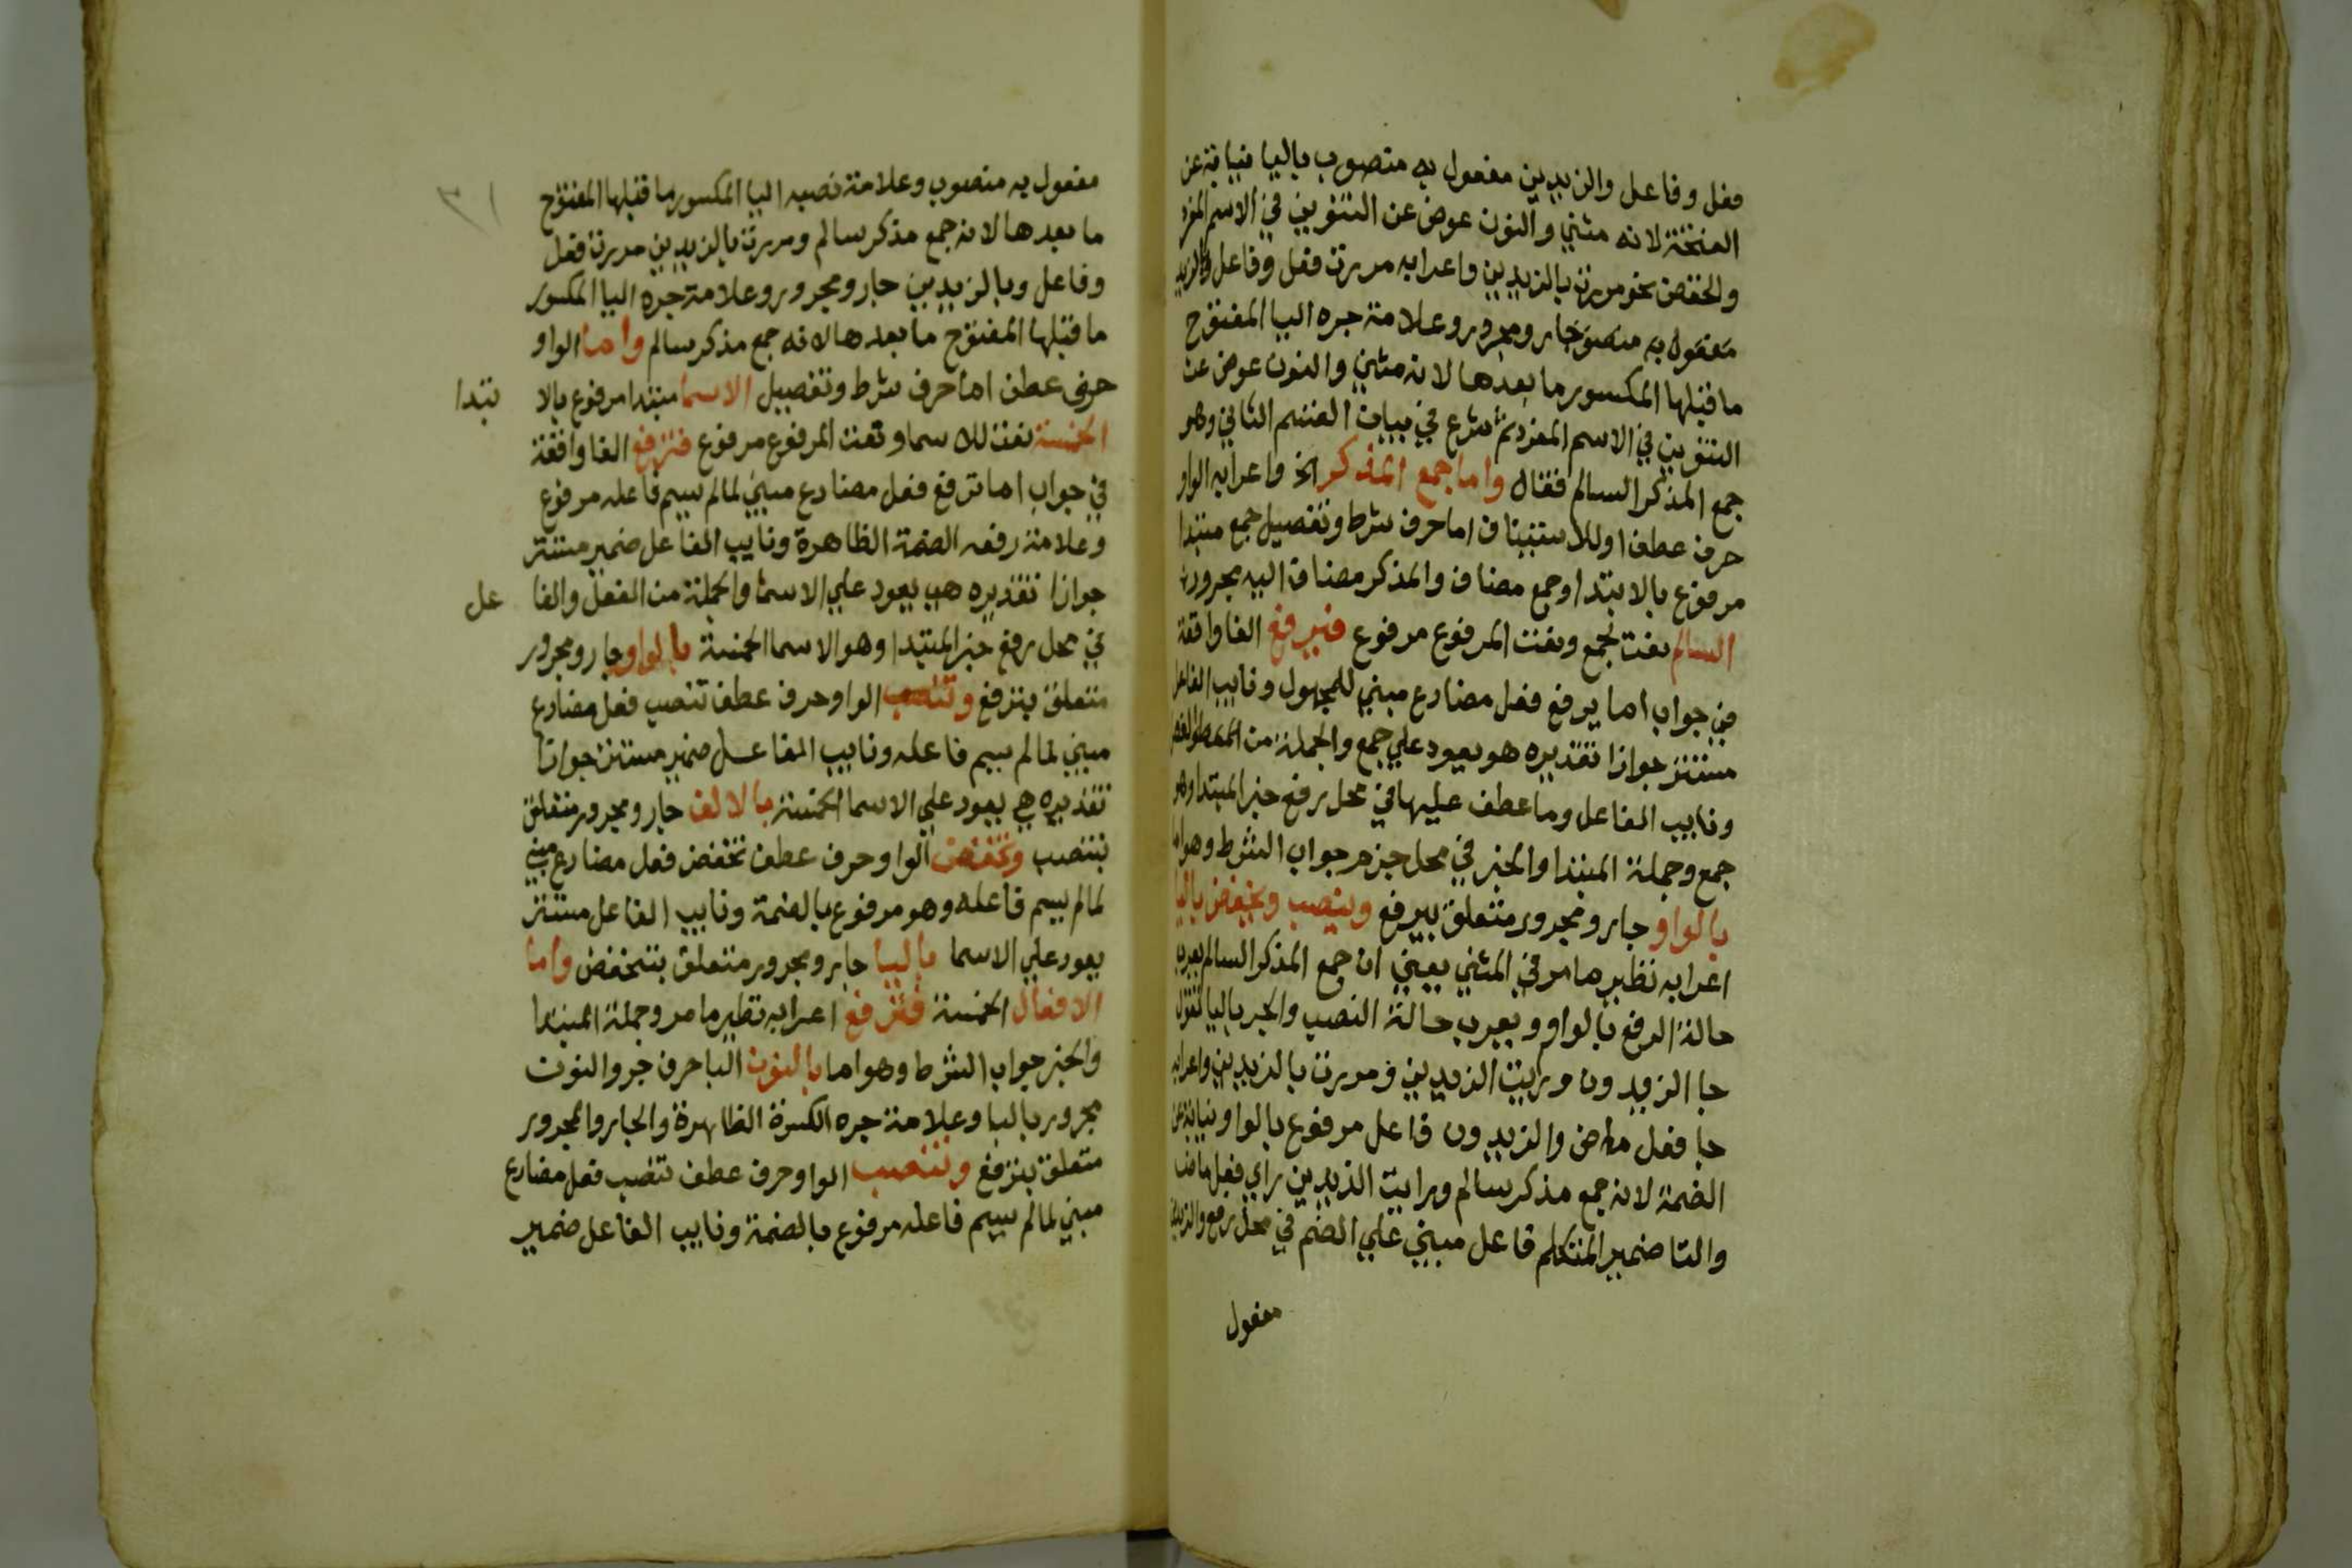 فعل وفاعل والزيدين مفعول به منصوب باليا نيابة عن
الفتحة لانه مثني والنون عوض عن التنوين في الاسم المفرد
والخفض نحو مررت بالزيدين واعرابه مررت فعل وفاعل وبالزيد
مفعول به منصوب جار ومجرور وعلامة جره اليا المفتوح
ما قبلها المكسور ما بعدها لانه مثني والنون عوض عن
التنوين في الاسم المفرد ثم شرع في بيان القسم الثاني وهو
جمع المذكر السالم فقال واما جمع المذكر الخ واعرابه الواو
حرف عطف او للاستيناف اما حرف شرط وتفصيل جمع مبتدا
مرفوع بالابتدا وجمع مضاف والمذكر مضاف اليه مجرور
السالم نعت لجمع ونعت المرفوع مرفوع فيرفع الفا واقعة
في جواب اما يرفع فعل مضارع مبني للمجهول ونايب الفاعل
مستتر جوازا تقديره هو يعود علي جمع والجملة من الفعل
ونايب الفاعل وما عطف عليها في محل رفع خبر المبتدا وهو
جمع وجملة المبتدا والخبر في محل جزم جواب الشرط وهو اما
بالواو جار ومجرور متعلق بيرفع وينصب ويخفض باليا
اعرابه نظير ما مر في المثني يعني ان جمع المذكر السالم يعرب
حالة الرفع بالواو ويعرب حالة النصب والجر باليا تقول
جا الزيدون ورايت الزيدين ومررت بالزيدين واعرابه
جا فعل ماض والزيدون فاعل مرفوع بالواو نيابة عن
الضمة لانه جمع مذكر سالم ورايت الزيدين راي فعل ماض
والتا ضمير المتكلم فاعل مبني علي الضم في محل رفع والزيدين
مفعول
مفعول به منصوب وعلامة نصبه اليا المكسور ما قبلها المفتوح
ما بعدها لانه جمع مذكر سالم ومررت بالزيدين مررت فعل
وفاعل وبالزيدين جار ومجرور وعلامة جره اليا المكسور
ما قبلها المفتوح ما بعدها لانه جمع مذكر سالم واما الواو
حرف عطف اما حرف شرط وتفصيل الاسما مبتدا مرفوع بالا بتدا
الخمسة نعت للاسما ونعت المرفوع مرفوع فترفع الفا واقعة
في جواب اما ترفع فعل مضارع مبني لمالم يسم فاعله مرفوع
وعلامة رفعه الضمة الظاهرة ونايب الفاعل ضمير مستتر
جوازا تقديره هي يعود علي الاسما والجملة من الفعل والفا عل
في محل رفع خبر المبتدا وهو الاسما الخمسة بالواو جار ومجرور
متعلق بترفع وتنصب الواو حرف عطف تنصب فعل مضارع
مبني لمالم يسم فاعله ونايب الفاعل ضمير مستتر جوازا
تقديره هي يعود علي الاسما الخمسة بالالف جار ومجرور متعلق
بتنصب وتخفض الواو حرف عطف تخفض فعل مضارع مبني
لمالم يسم فاعله وهو مرفوع بالضمة ونايب الفاعل مستتر
يعود علي الاسما باليا جار ومجرور متعلق بتخفض واما
الافعال الخمسة فترفع اعرابه نظير ما مر وجملة المبتدا
والخبر جواب الشرط وهو اما بالنون البا حرف جر والنون
مجرور بالبا وعلامة جره الكسرة الظاهرة والجار والمجرور
متعلق بترفع وتنصب الواو حرف عطف تنصب فعل مضارع
مبني لمالم يسم فاعله مرفوع بالضمة ونايب الفاعل ضمير